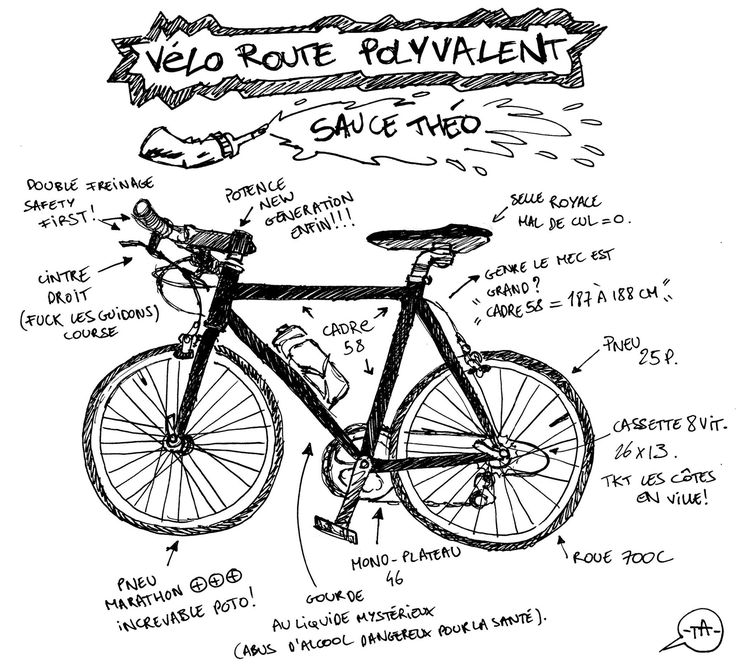 VÉLO ROUTE POLYVALENT
SAUCE THÉO
DOUBLE FREINAGE
SAFETY
FIRST!
POTENCE
NEW
GÉNÉRATION
ENFIN!!!
SELLE ROYALE
MAL DE CUL = 0.
CINTRE
DROIT
(FUCK LES GUIDONS)
COURSE
GENRE LE MEC EST
GRAND?
"CADRE 58 = 187 À 188 CM"
CADRE
58
PNEU
25P.
CASSETTE 8 VIT.
26 x 13.
TKT LES CÔTES
EN VILLE!
ROUE 700C
MONO-PLATEAU
46
PNEU
MARATHON ⊕⊕⊕
INCREVABLE POTO!
GOURDE
AU LIQUIDE MYSTÉRIEUX
(ABUS D'ALCOOL DANGEREUX POUR LA SANTÉ).
-TA-